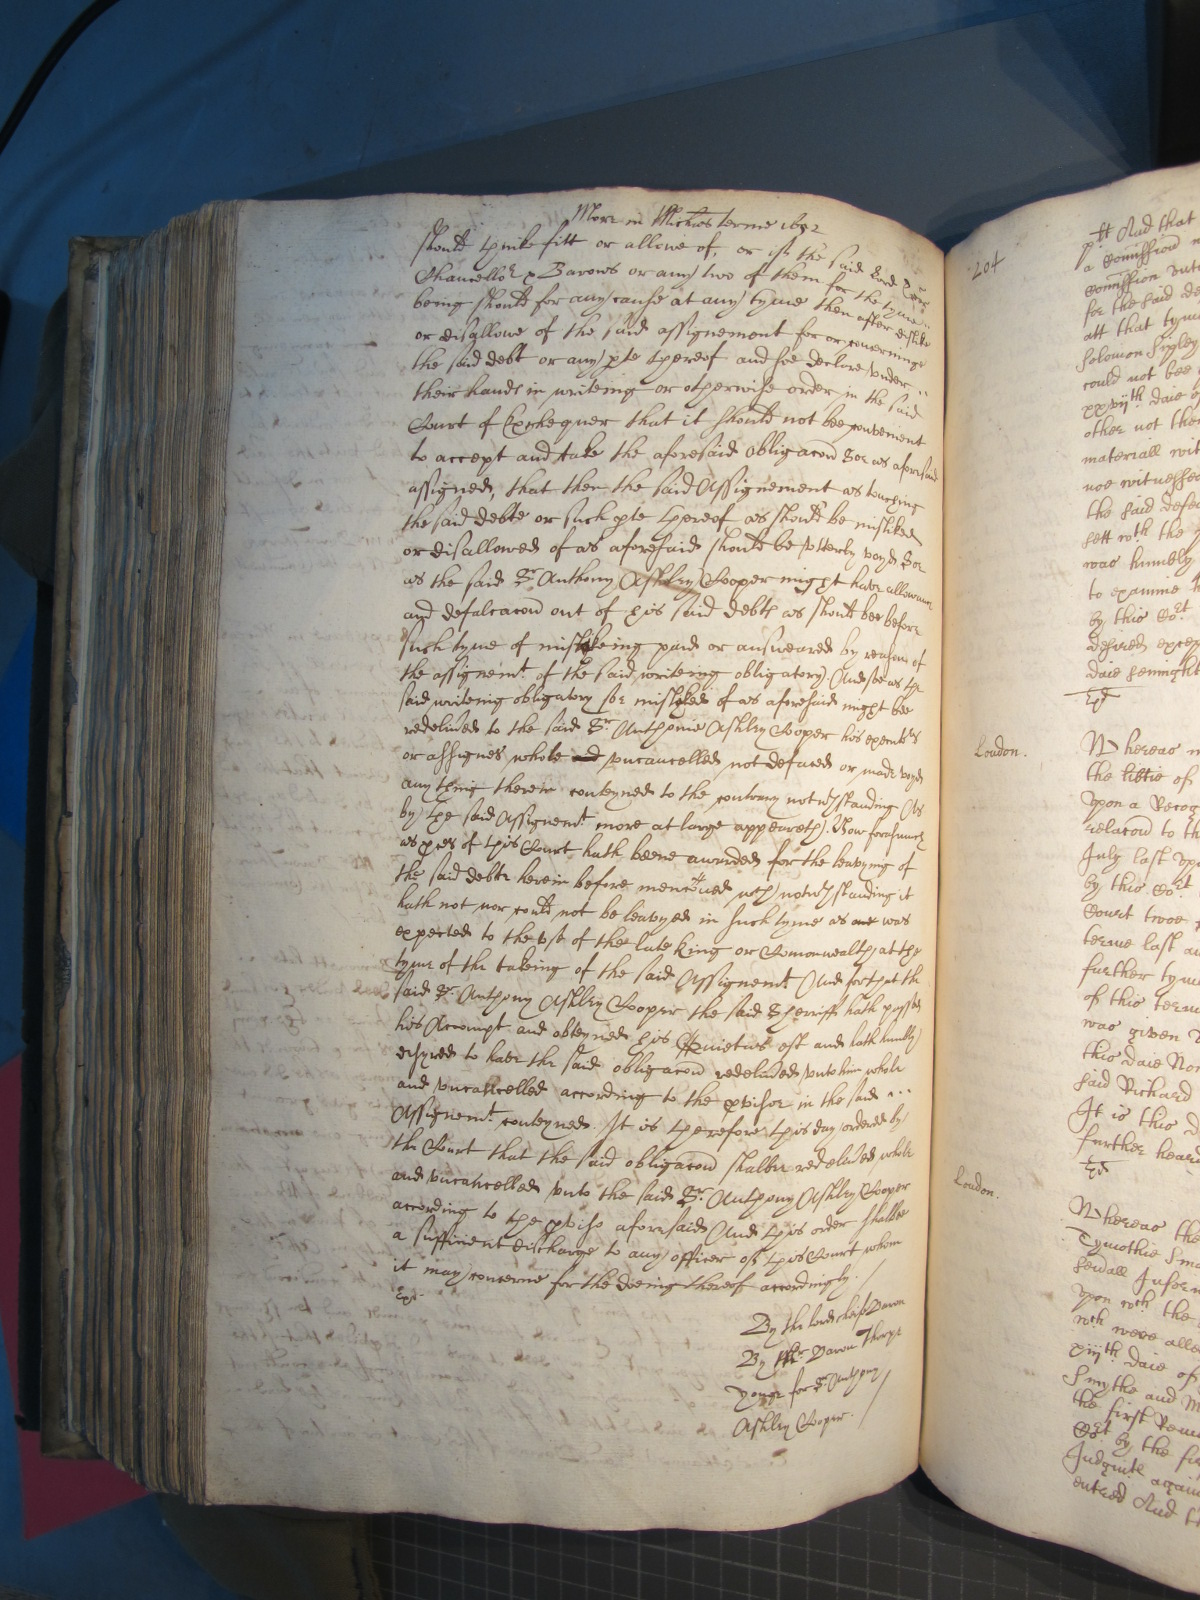 More in Michās terme 1652
should thinke fitt or allowe of, or if the said Lord
Chancellor & Barons or any two of them for the tyme
being should for any cause at any tyme then after dislike
or disallowe of the said assignement for or concerninge
the said debt or any pte thereof and soe declare under
their hands in writeing or otherwise order in the said
Court of Exchequer that it should not bee convenient
to accept and take the aforesaid obligacon soe as aforesaid
assigned, that then the said Assignement as touching
the said debte or such pte thereof as should be misliked
or disallowed of as aforesaid should be utterly voyd Soe
as the said Sr Anthony Ashley Cooper might have allowance
and defalcacon out of his said debts as should bee before
such tyme of mislikeing paid or answeared by reason of
the assignemt. of the said writeing obligatory. And soe as the
said writeing obligatory soe misliked of as aforesaid might bee
redelived to the said Sr Anthonie Ashley Cooper his executrs
or assignes whole and uncancelled not defaced or made voyd
any thing therein conteyned to the contrary notwthstanding As
by the said Assignemt. more at large appeareth. Now forasmuch
as pces of this Court hath beene awarded for the leavying of
the said debte herein before mencōned wch notwthstanding it
hath not nor could not be leavyed in such tyme as was
expected to the use of the late King or Comonwealth at the
tyme of the takeing of the said Assignemt And for that the
said Sr. Anthony Ashley Cooper the said Sherriff hath passed
his Accompt and obteyned his Quietus est and hath humbly
desyred to have the said obligacon redelived unto him whole
and uncancelled according to the pviso in the said ...
Assignemt. conteyned. It is therefore this day ordered by
the Court that the said obligacon shalbee redelived whole
and uncancelled unto the said Sr. Anthony Ashley Cooper
according to the pviso aforesaid And this order shalbee
a sufficient discharge to any officer of this Court whom
it may concerne for the doeing thereof accordingly. /
Exr.
By the lord cheif Baron
By Mr. Baron Thorpe
Yonge for Sr. Anthony
Ashley Cooper. /
204
And that
a Comission
Comission
for the said
att that tyme
Solomon
could not bee
xxviith. daie of
other not
materiall
noe witnesses
the said
sett wth. the
was humbly
to examine
by this Cort
desired
daie senight
London.
Whereas
the
upon a Recog
relacon to
July last
by this Cort.
Court
terme last
further tyme
of this terme
was given
this daie
said Richard
It is this
further heard
London.
Whereas the
Tymothie
Sewall
upon wch. the
wch were
xiiith daie of
Smythe and
the first
Cort by the
Judgmte against
entred And